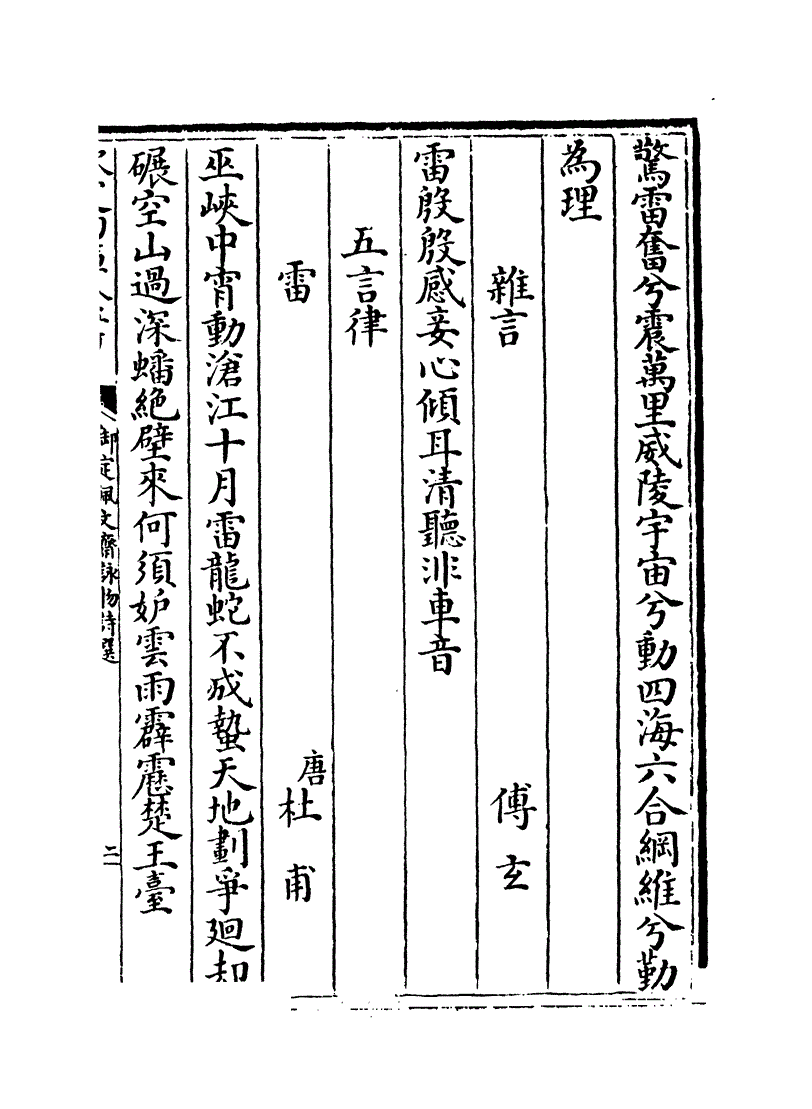 驚雷奮兮震萬里威陵宇宙兮動四海六合綱維兮勤
為理
雜言 傅玄
雷殷殷感妾心傾耳清聽非車音
五言律
雷 唐杜甫
巫峽中宵動滄江十月雷龍蛇不成蟄天地劃爭廻却
碾空山過深蟠絶壁來何須妒雲雨霹靂楚王臺
御定佩文齋詠物詩選
二